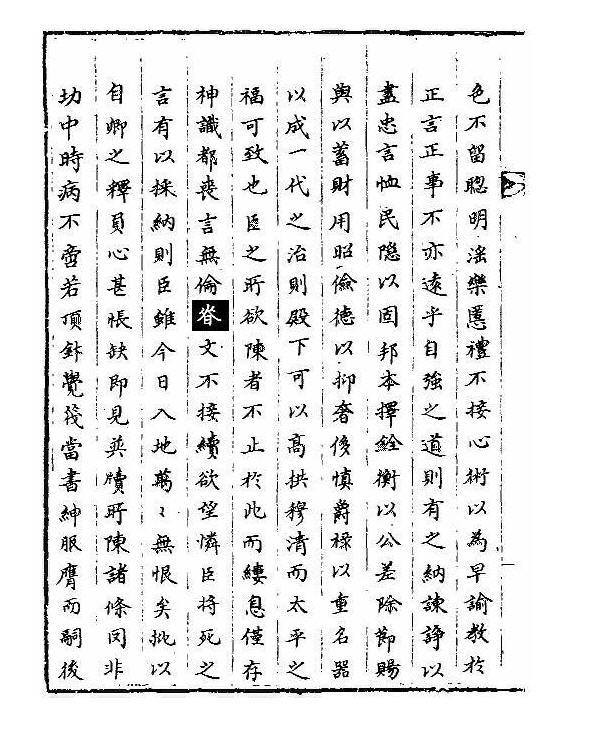 色不留聦明滛樂慝禮不接心術以為早諭敎於
正言正事不亦遠乎自強之道則有之納諫諍以
盡忠言恤民隐以固邦本擇銓衡以公差除節賜
與以蓄財用昭儉德以抑奢侈慎爵祿以重名器
以成一代之治則殿下可以高拱穆清而太平之
福可致也臣之所欲陳者不止於此而縷息僅存
神識都喪言無倫脊文不接續欲望憐臣將死之
言有以採納則臣雖今日入地萬〻無恨矣批以
自卿之釋負心甚悵缺卽見兾牘所陳諸條罔非
切中時病不啻若頂針覺後當書紳服膺而嗣後